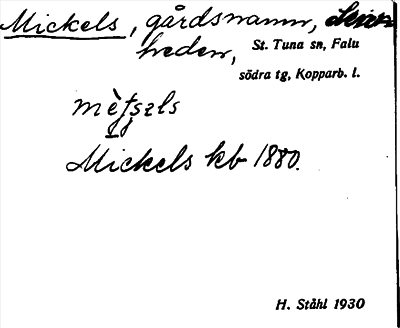 Mickels, gårdsnamn,
heden, St. Tuna sn, Falu
södra tg, Kopparb. l.
Mickels kb 1880.
H. Ståhl 1930